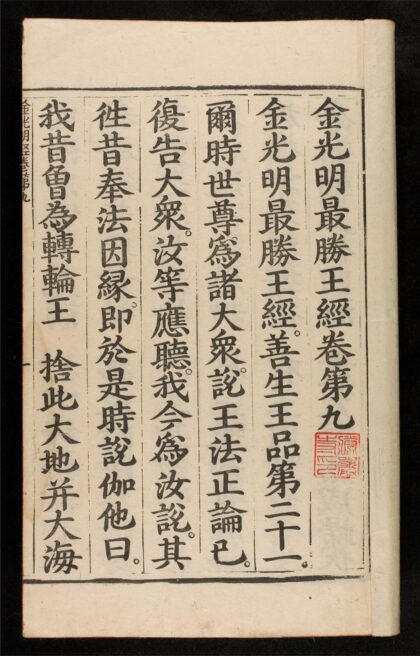 金光明最勝王經卷第九
金光明最勝王經。善生王品第二十一
爾時世尊。為諸大衆。說王法正論已。
復告大衆。汝等應聽。我今為汝說。其
徃昔奉法因緣。即於是時說伽他曰。
我昔曾為轉輪王　捨此大地并大海
金光明經卷第九
一